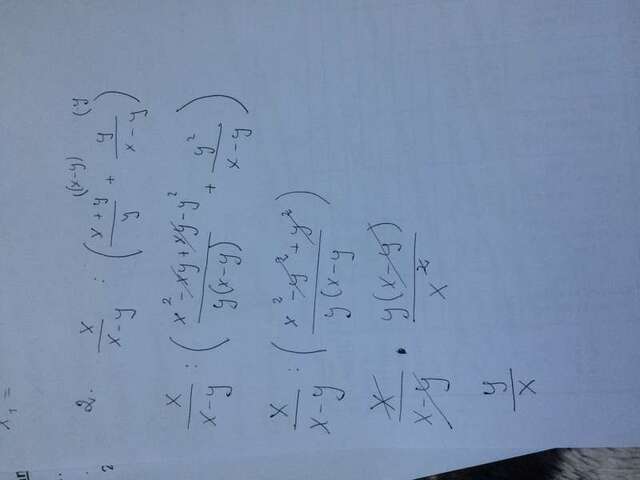 x₁ =
2. x/(x-y) : ((x+y)/y ((x-y) + y/(x-y) (y)
x/(x-y) : ((x²-xy+xy-y²)/(y(x-y)) + y²/(x-y))
x/(x-y) : ((x²-y²+y²)/(y(x-y))
x/(x-y) · y(x-y)/x²
y/x